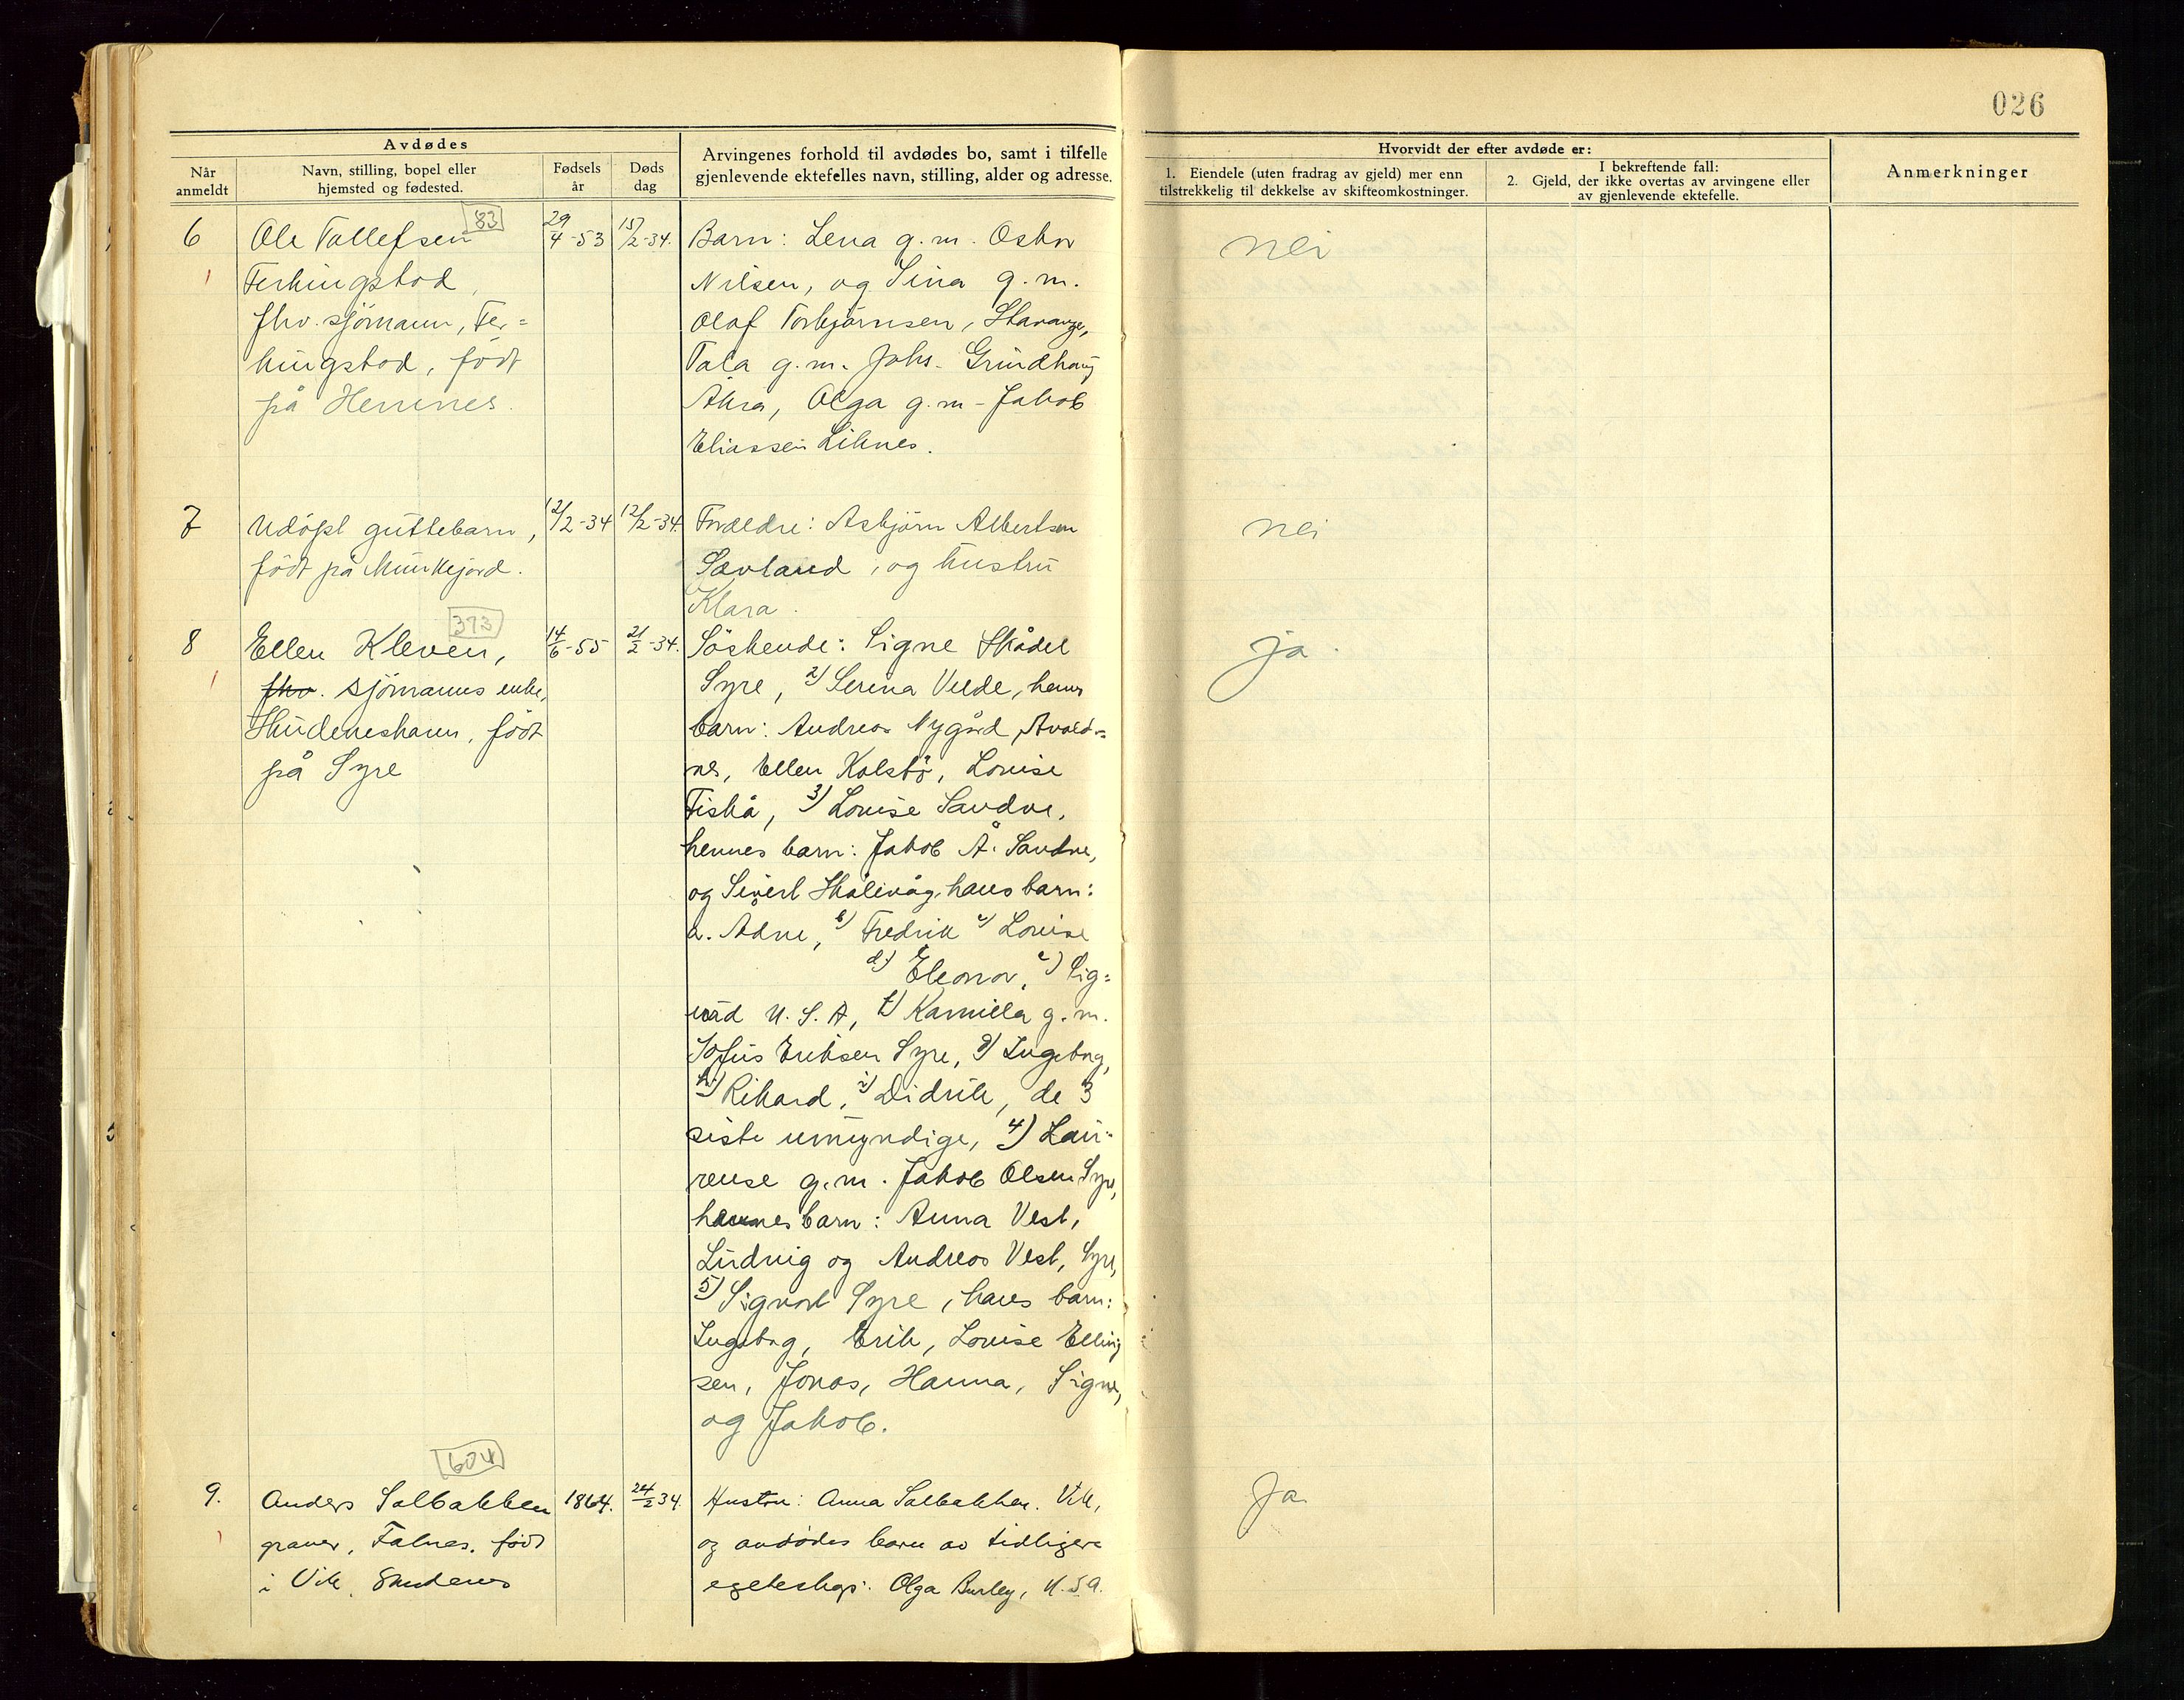 026
Avdødes
Når anmeldt
Navn, stilling, bopel eller hjemsted og fødested.
Fødsels år
Døds dag
Arvingenes forhold til avdødes bo, samt i tilfelle gjenlevende ektefelles navn, stilling, alder og adresse.
Hvorvidt der efter avdøde er:
1. Eiendele (uten fradrag av gjeld) mer enn tilstrekkelig til dekkelse av skifteomkostninger.
I bekreftende fall:
2. Gjeld, der ikke overtas av arvingene eller av gjenlevende ektefelle.
Anmerkninger
83
6 Ole Tollefsen 29/4-53 15/2-34. Barn: Lena g.m. Oskar nei
Ferkingstad, Nilsen, og Sina g.m.
fhv. sjömann, Fer= Olaf Torbjörnsen, Stavanger,
kingstad, född Tala g.m. Johs. Grindhaug
på Hemnes. Åkra, Olga g.m. Jakob
Eliassen Liknes.
7 Udöpt guttebarn, 12/2-34 12/2-34. Foreldre: Asbjörn Albertsen nei
födt på Munkejord. Sævland, og hustru
Klara.
373
8 Ellen Kleven, 14/6-55 21/2-34. Söskende: Signe Skådel ja.
fhv. sjömanns enke, Syre, 2) Serina Veede, hennes
Skudeneshavn, födt barn: Andreas Nygård, Avalds=
på Syre nes, Ellen Kolstö, Louise
Fiskå, 3) Louise Sandve,
hennes barn: Jakob Å. Sandve,
og Sivert Skålevåg, hans barn:
a. Ådne, b) Fredrik c) Louise
d) Eleonor, e) Sig=
vald U.S.A, f) Kamilla g.m.
Sofus Eriksen Syre, g) Ingeborg,
h) Rikard, i) Didrik, de 3
siste umyndige, 4) Lau=
rense g.m. Jakob Olsen Syre,
hennes barn: Anna Vest,
Ludvig og Andreas Vest, Syre,
5) Sigvart Syre, hans barn:
Ingeborg, Erik, Louise Elling
sen, Jonas, Hanna, Signe,
og Jakob.
604
9. Anders Solbakken 1864. 24/2 34. Hustru: Anna Solbakken. Vik, Ja.
graver, Falnes, födt og avdödes barn av tidligere
i Vik, Skudenes egteskap: Olga Burley, U.S.A.